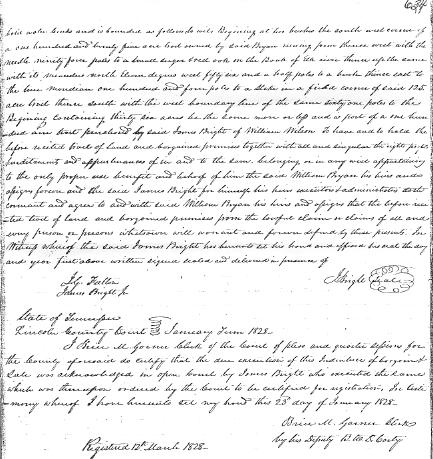 634
hold water Creek and is bounded as follows to wit Begining at his bushes the south west corner of
a one hundred and twenty five acre tract owned by said Bryan runing from thence west with the
needle ninety four poles to a small sugar tree on the Bank of Elk river thence up the same
with its meanders north Eleven degrees west fifty six and a half poles to a bush thence east to
the true meridian one hundred and four poles to a stake in a field corner of said 125
acre tract thence south with the west boundary line of the same sixty one poles to the
Begining Containing thirty six acres be the same more or less and a part of a one hundred
acre tract purchased by said James Bright of William Wilson To have and to hold the
before recited tract of land and bargained premises together with all and singular the rights profits
hereditaments and appurtenances of in and to the same belonging or in any wise appertaining
to the only proper use benefit and behoof of him the said William Bryan his heirs and
assigns forever and the said James Bright for himself his heirs executors & administrators doth
covenant and agree to and with said William Bryan his heirs and assigns that the before reci
ted tract of land and bargained premises from the lawful claim or claims of all and
every person or persons whatsoever will warrant and forever defend by these presents. In
Witness whereof the said James Bright has hereunto set his hand and affixed his seal the day
and year first above written signed sealed and delivered in presence of
James Bright Jr
J Bright Seal
State of Tennessee
Lincoln County Court January Term 1828
I Brice M. Garner Clerk of the Court of pleas and quarter sessions for
the County aforesaid do certify that the due execution of this Indenture of bargain &
Sale was acknowledged in open Court by James Bright who executed the same
which was thereupon ordered by the Court to be certified for registration, In testi
mony whereof I have hereunto set my hand this 23d day of January 1828
Brice M. Garner Clerk
by his Deputy
Registered 12th March 1828